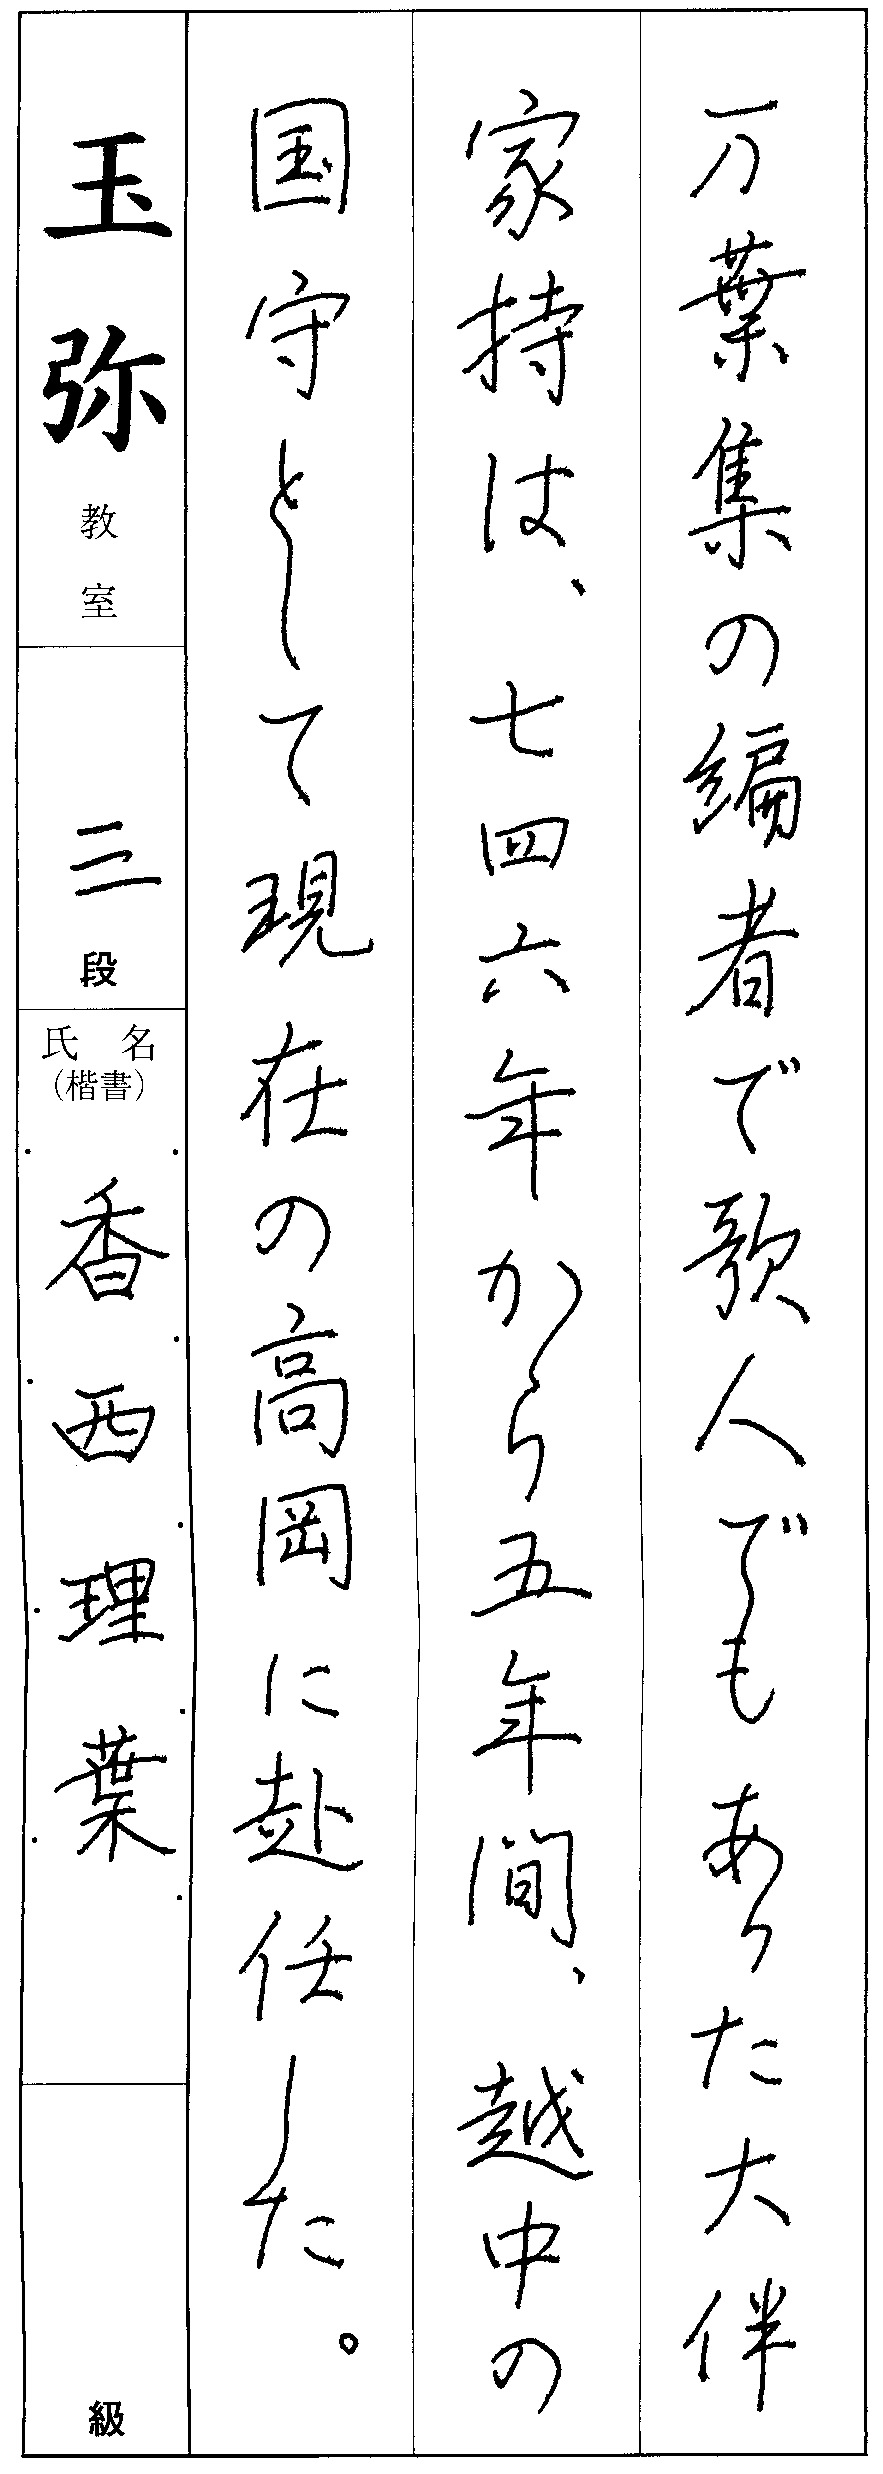 万葉集の編者で歌人でもあった大伴
家持は、七四六年から五年間、越中の
国守として現在の高岡に赴任した。
玉弥教室
三段
氏名
(楷書)
香西理葉
級